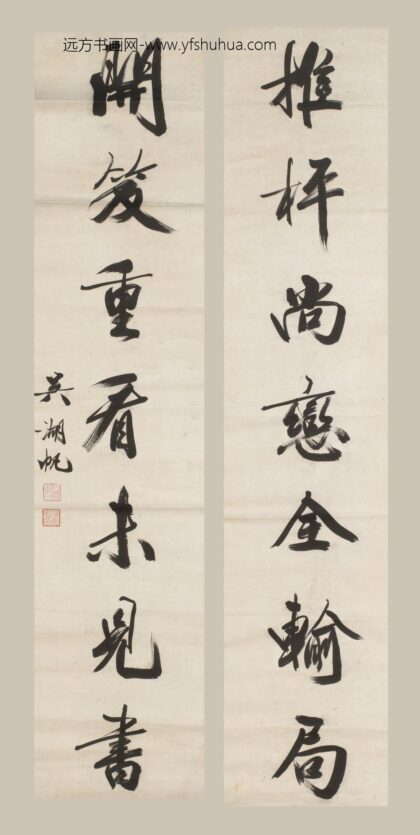 远方书画网-www.yfshuhua.com
推枰尚戀全輸局
開笈重看未見書
吳湖帆